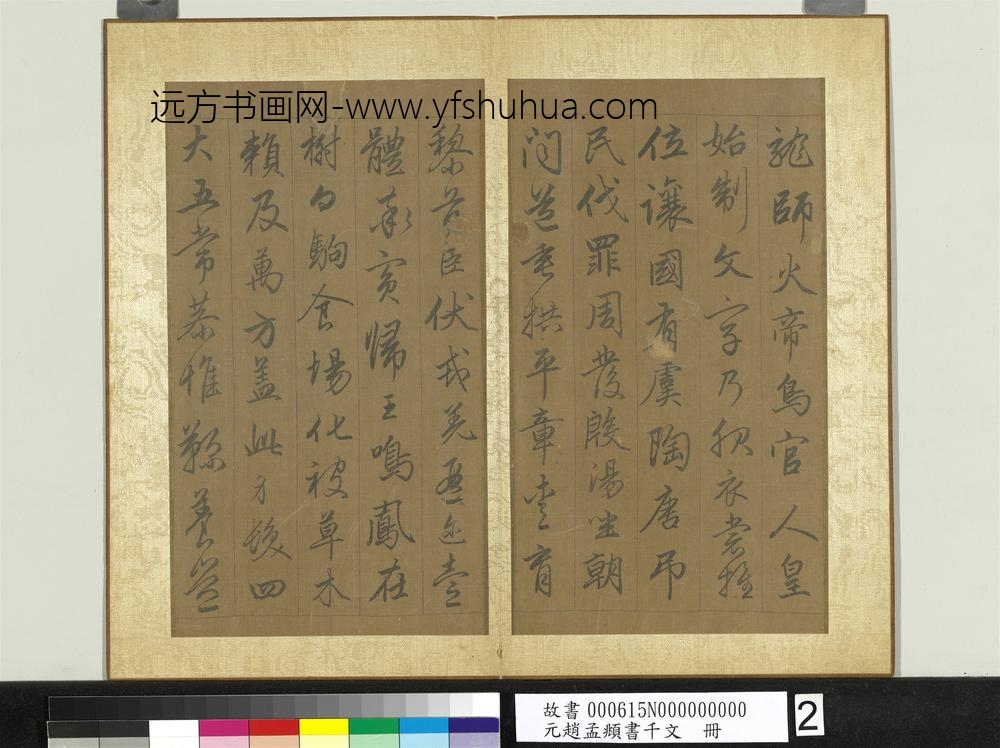 远方书画网-www.yfshuhua.com
龍師火帝鳥官人皇
始制文字乃服衣裳推
位讓國有虞陶唐吊
民伐罪周發殷湯坐朝
問道垂拱平章愛育
黎首臣伏戎羌遐邇壹
體率賓歸王鳴鳳在
樹白駒食場化被草木
賴及萬方蓋此身髮四
大五常恭惟鞠養豈
故書 000615N000000000
元趙孟頫書千文 冊
2